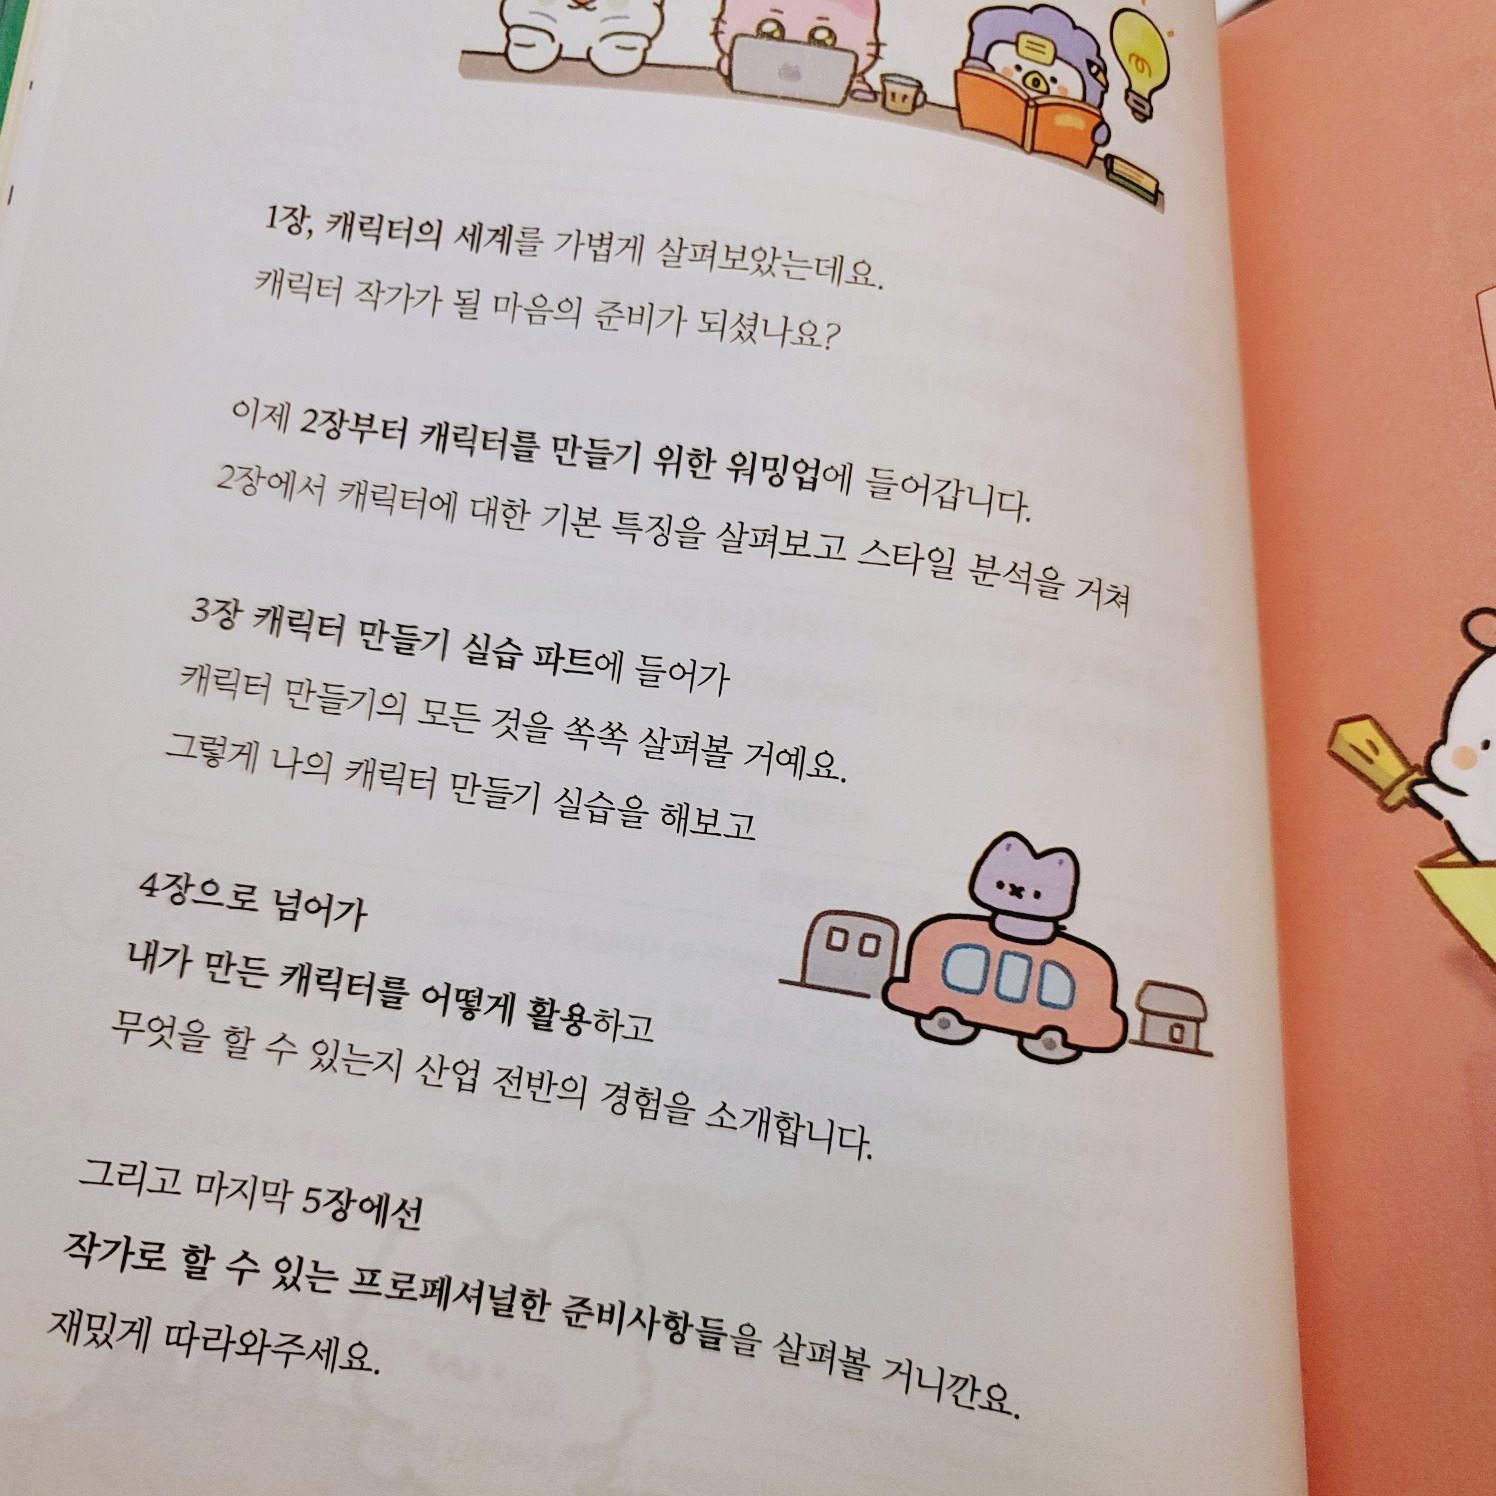 1장, 캐릭터의 세계를 가볍게 살펴보았는데요.
캐릭터 작가가 될 마음의 준비가 되셨나요?
이제 2장부터 캐릭터를 만들기 위한 워밍업에 들어갑니다.
2장에서 캐릭터에 대한 기본 특징을 살펴보고 스타일 분석을 거쳐
3장 캐릭터 만들기 실습 파트에 들어가
캐릭터 만들기의 모든 것을 쏙쏙 살펴볼 거예요.
그렇게 나의 캐릭터 만들기 실습을 해보고
4장으로 넘어가
내가 만든 캐릭터를 어떻게 활용하고
무엇을 할 수 있는지 산업 전반의 경험을 소개합니다.
그리고 마지막 5장에선
작가로 할 수 있는 프로페셔널한 준비사항들을 살펴볼 거니깐요.
재밌게 따라와주세요.